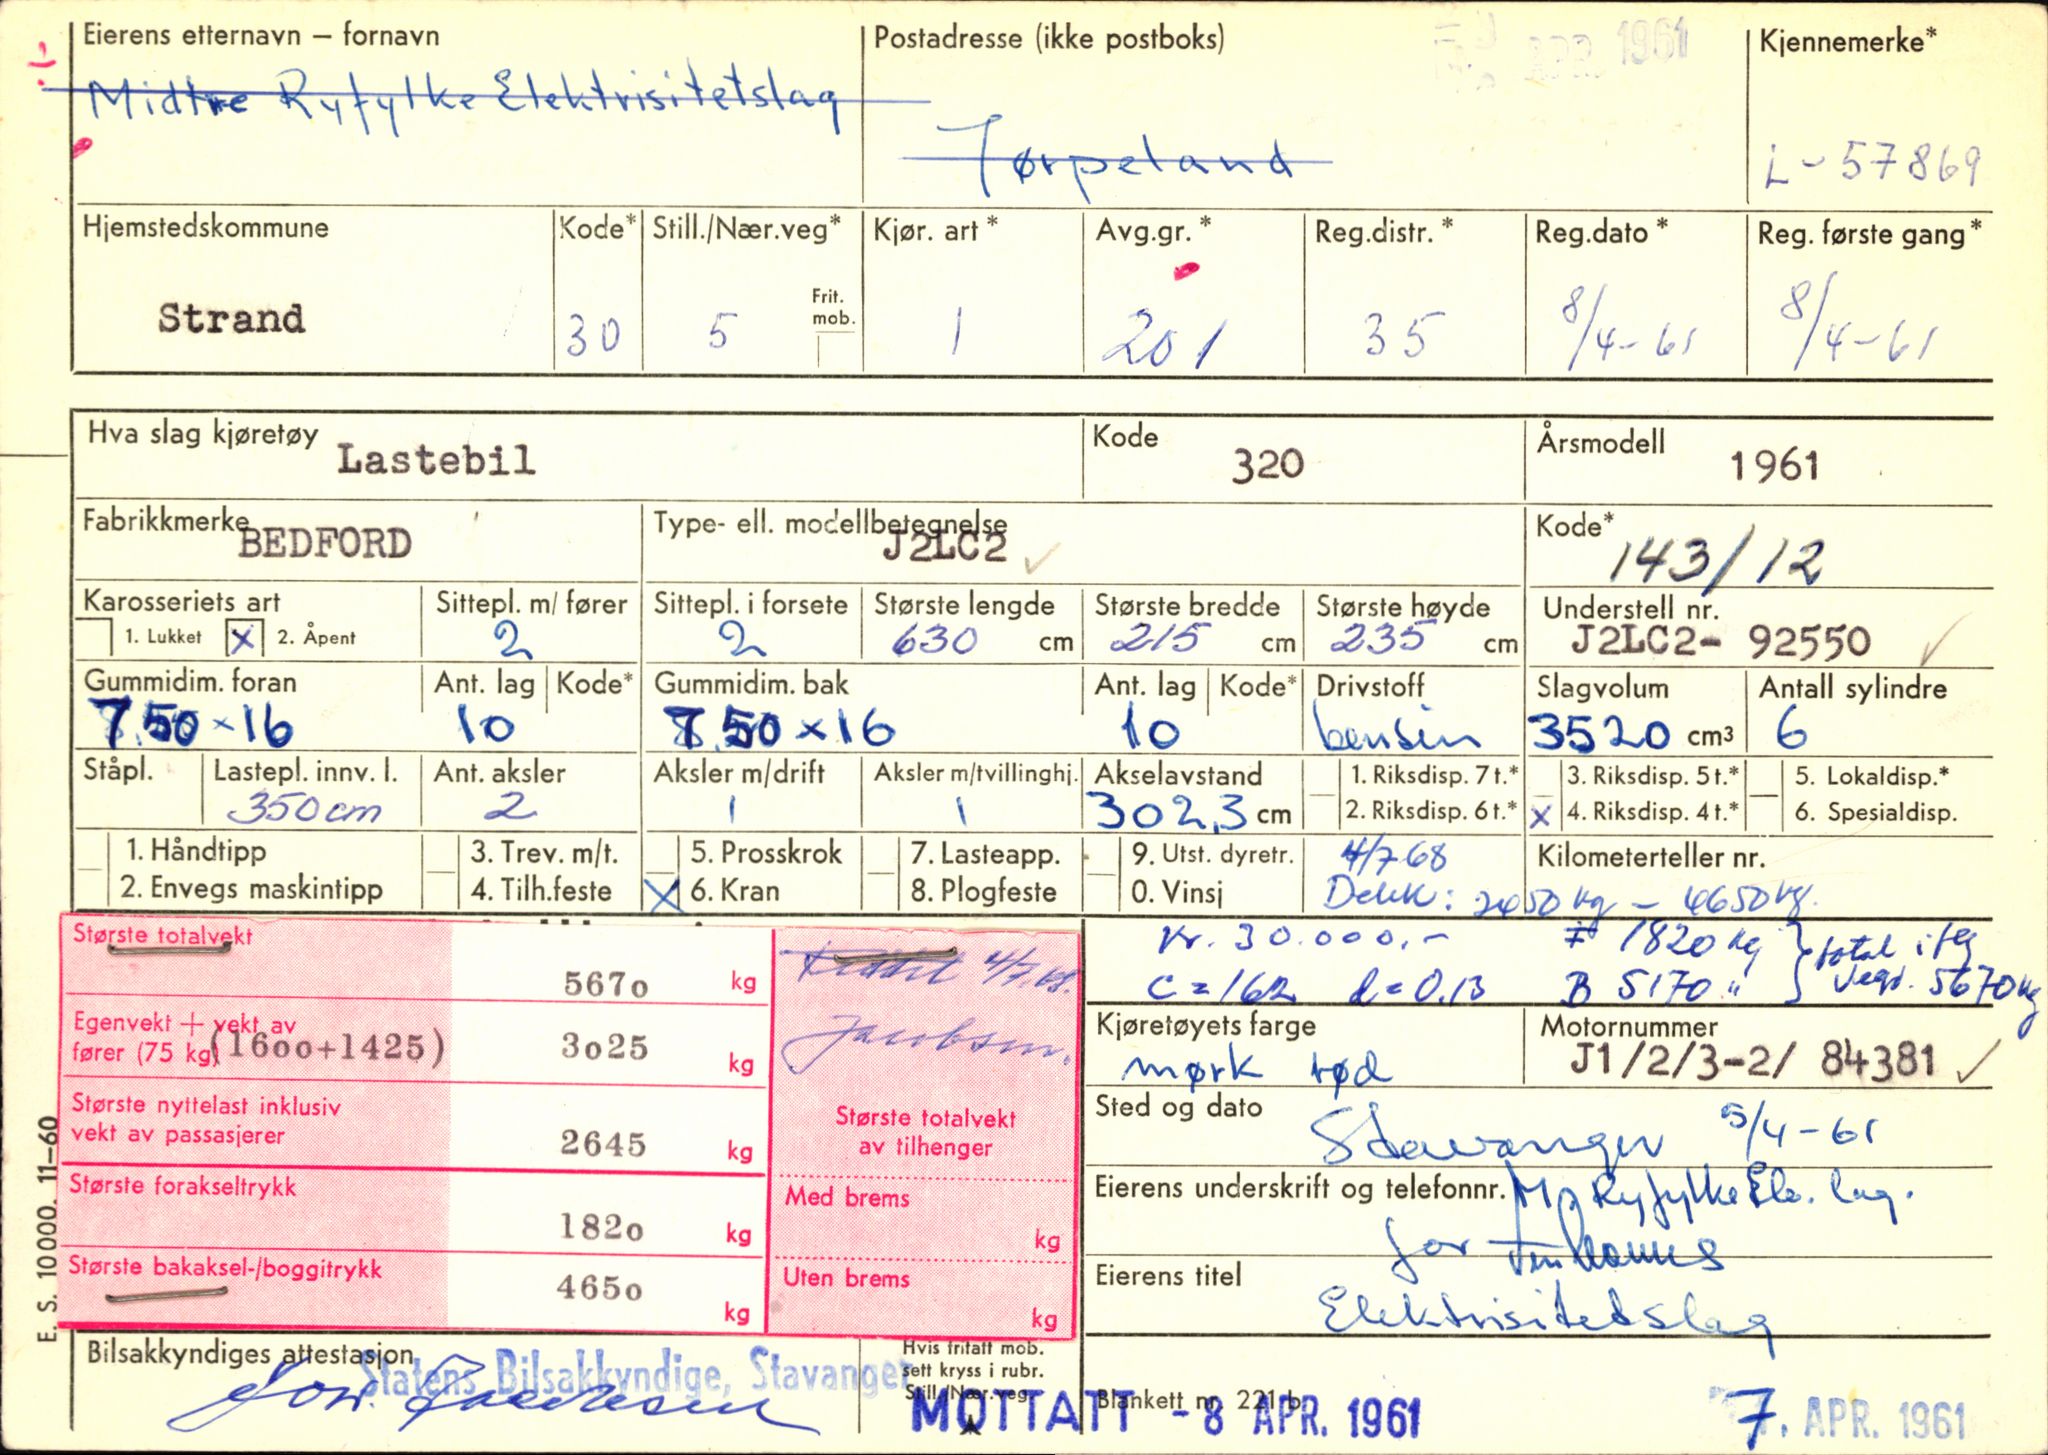 Eierens etternavn – fornavn
Midtre Ryfylke Elektrisitetslag
Postadresse (ikke postboks)
APR. 1961
Jørpeland
Kjennemerke*
L-57869
Hjemstedskommune
Strand
Kode*
30
Still./Nær.veg*
5
Frit. mob.
Kjør. art*
1
Avg.gr.*
201
Reg.distr.*
35
Reg.dato*
8/4-61
Reg. første gang*
8/4-61
Hva slag kjøretøy
Lastebil
Kode
320
Årsmodell
1961
Fabrikkmerke
BEDFORD
Type- ell. modellbetegnelse
J2LC2
Kode*
143/12
Karosseriets art
1. Lukket x 2. Åpent
Sittepl. m/ fører
2
Sittepl. i forsete
2
Største lengde
630 cm
Største bredde
215 cm
Største høyde
235 cm
Understell nr.
J2LC2- 92550
Gummidim. foran
7.50 x 16
Ant. lag
10
Kode*
Gummidim. bak
7.50 x 16
Ant. lag
10
Kode*
Drivstoff
bensin
Slagvolum
3520 cm3
Antall sylindre
6
Ståpl.
Lastepl. innv. l.
350 cm
Ant. aksler
2
Aksler m/drift
1
Aksler m/tvillinghj.
1
Akselavstand
302,3 cm
1. Riksdisp. 7 t.*
2. Riksdisp. 6 t.*
3. Riksdisp. 5 t.*
x 4. Riksdisp. 4 t.*
5. Lokaldisp.*
6. Spesialdisp.
1. Håndtipp
2. Envegs maskintipp
3. Trev. m/t.
4. Tilh.feste
5. Prosskrok
x 6. Kran
7. Lasteapp.
8. Plogfeste
9. Utst. dyretr.
0. Vinsj
4/7 68
Kilometerteller nr.
Dekk: 2450 kg – 4650 kg.
Kr. 30.000,-
C = 162 d = 0.13
F 1820 kg
B 5170 "
total i flg
vegd. 5670 kg
Største totalvekt
5670 kg
Egenvekt + vekt av
fører (75 kg) (1600+1425) 3025 kg
Største nyttelast inklusiv
vekt av passasjerer
2645 kg
Største forakseltrykk
1820 kg
Største bakaksel-/boggitrykk
4650 kg
4/7.68.
Jacobsen.
Største totalvekt
av tilhenger
Med brems
kg
Uten brems
kg
Kjøretøyets farge
mørk rød
Motornummer
J1/2/3-2/ 84381
Sted og dato
Stavanger 5/4-61
Eierens underskrift og telefonnr.
M. Ryfylke Ele. lag.
for
Eierens titel
Elektrisitetslag
E. S. 10 000. 11–60
Bilsakkyndiges attestasjon
Statens Bilsakkyndige, Stavanger
Hvis fritatt mob.
sett kryss i rubr.
Still./Nær.veg.
Blankett nr. 221 b
MOTTATT - 8 APR. 1961
7. APR. 1961